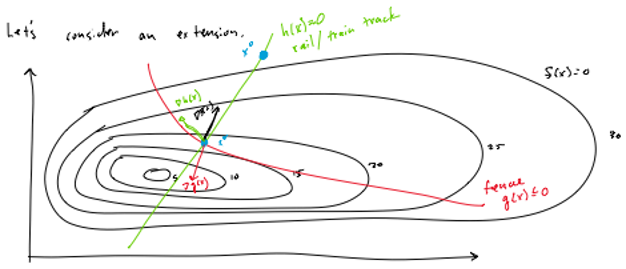 Let's consider an extension.
h(x)=0
rail/train track
x⁰
f(x)=0
∇h(x)
x*
5
10
15
20
25
30
∇g(x)
fence
g(x)≤0